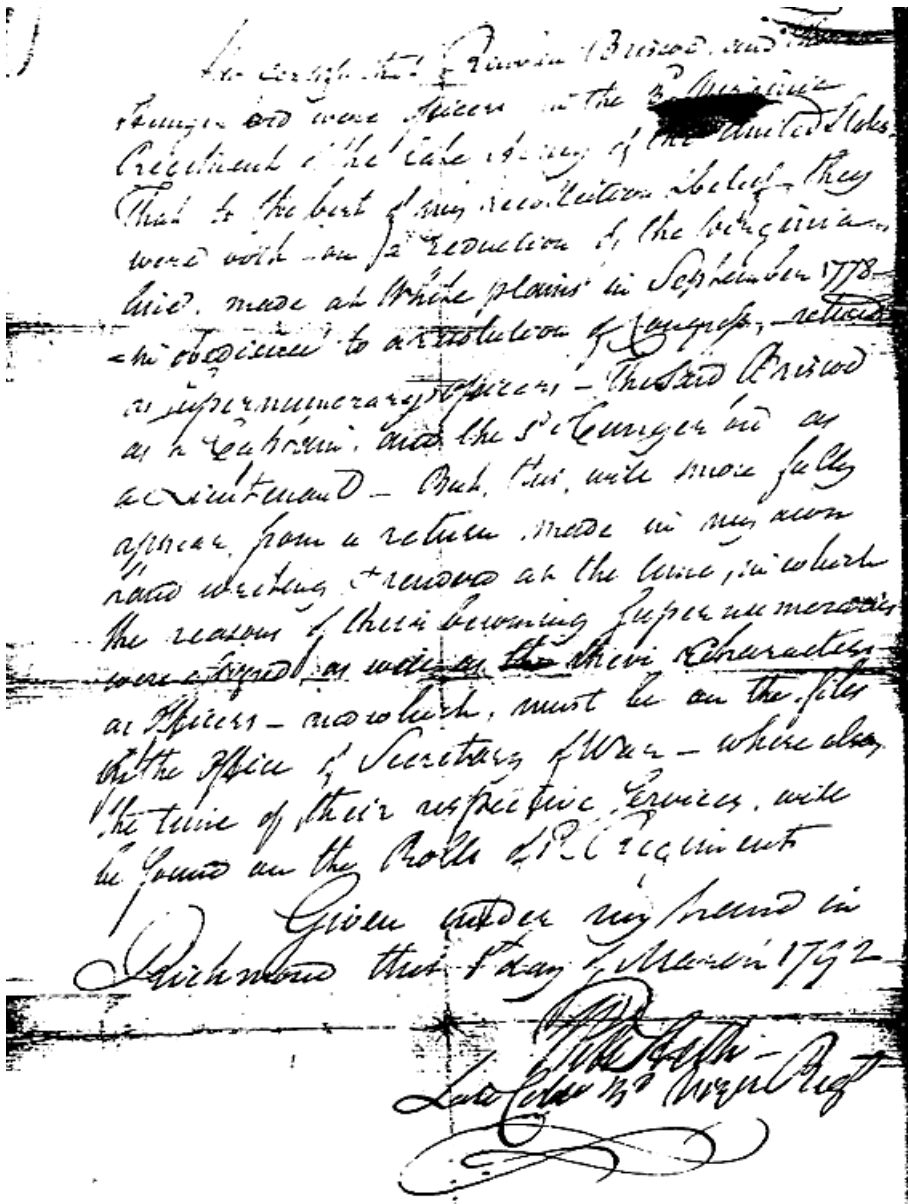 certify that Reuben Briscoe, and
Youngerbird were officers in the 3d Virginia
Regiment of the late Army of the United States
That to the best of my recollection & belief, they
were both on reduction of the Virginia
line, made at White plains in September 1778
in obedience to a resolution of Congress, retired
as supernumerary officers – The said Briscoe
as a Captain and the sd
a Lieutenant – But, this, will more fully
appear, from a return made in my own
hand writing & at the time, in which
the reasons of their becoming Supernumeraries
were as well as their Characters
as Officers – which, must be on the files
of the Office of Secretary of War – where also
the time of their respective Services, will
be found on the Rolls of Regiments
Given under my hand in
Richmond this day of March 1792
Late Colo 3d Virga Regt